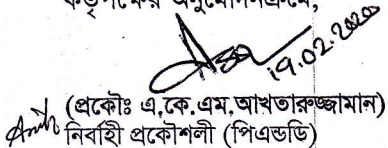 কর্তৃপক্ষের অনুমোদনক্রমে,
19.02.2020
(প্রকৌঃ এ,কে.এম,আখতারুজ্জামান)
নির্বাহী প্রকৌশলী (পিএন্ডডি)